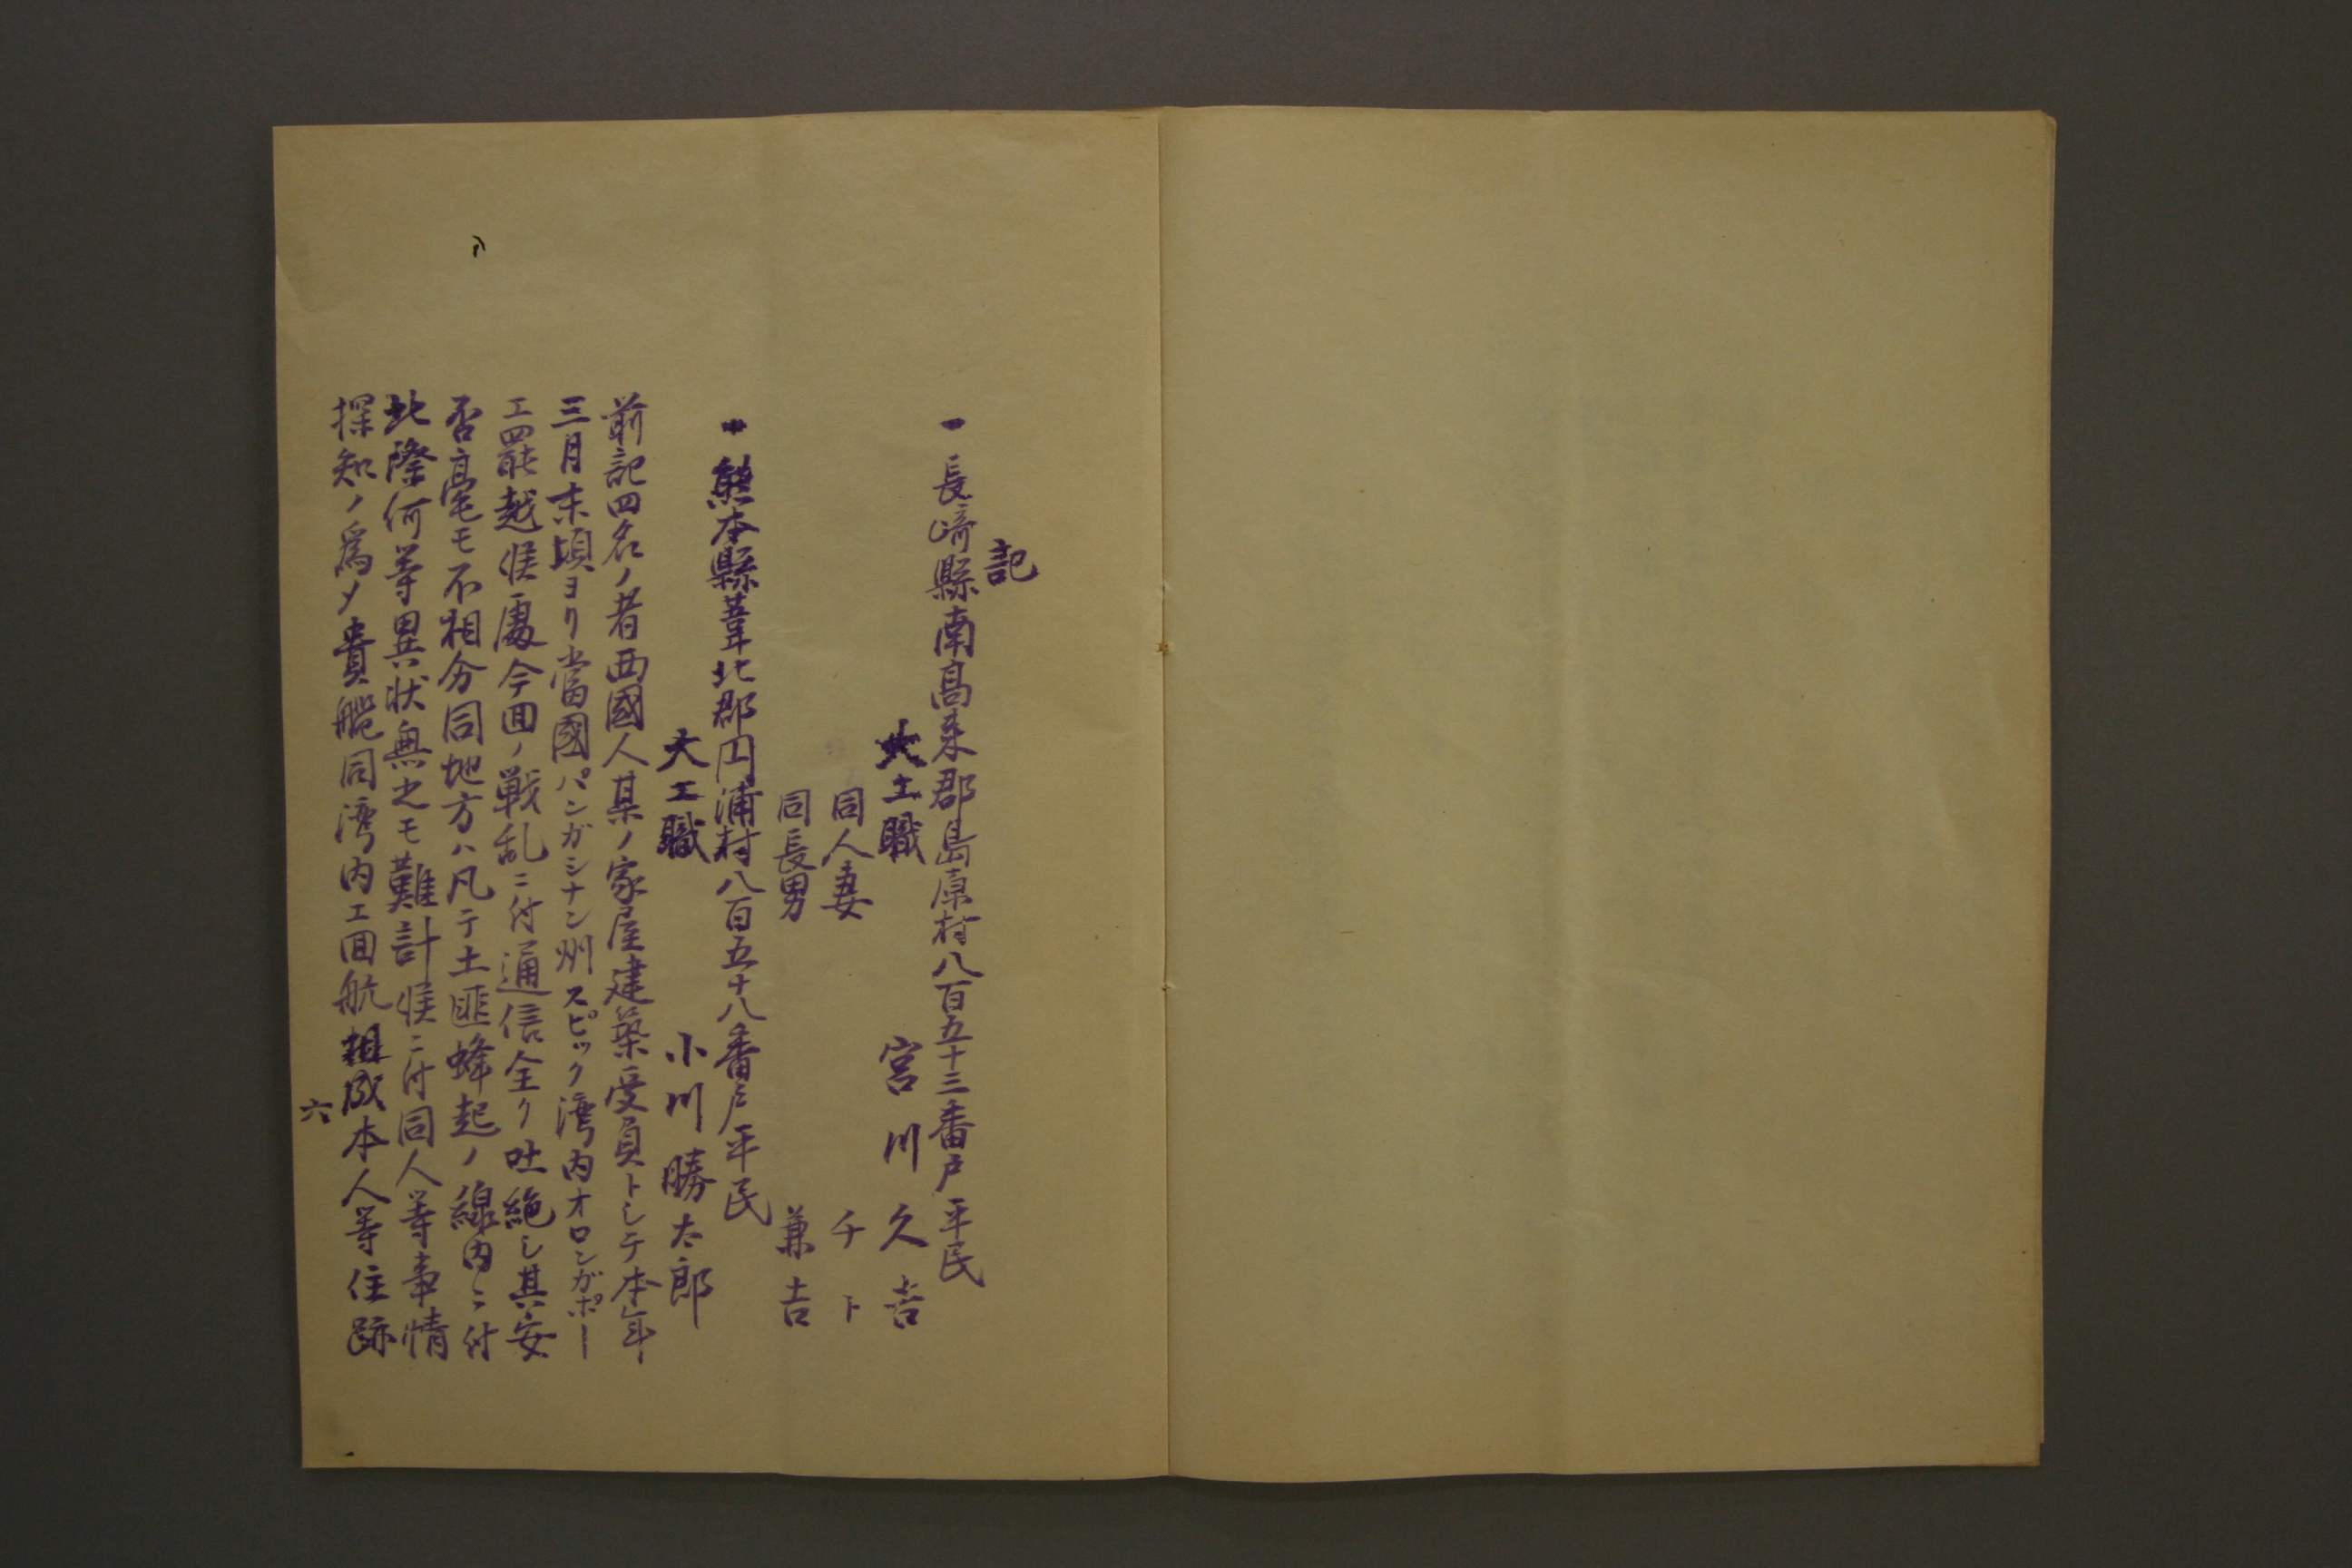 記
一 長崎縣南高来郡島原村八百五十三番戸平民
大工職 宮川久吉
同人妻 チト
同長男 兼吉
一 熊本縣葦北郡円浦村八百五十八番戸平民
大工職 小川勝太郎
前記四名ノ者西國人某ノ家屋建築受員トシテ本年
三月末頃ヨリ當國パンガシナン州スピック湾内オロンガポー
エ罷越候處今回ノ戦乱ニ付通信全ク吐絶シ其安
否毫モ不相分同地方ハ凡テ土匪蜂起ノ線内ニ付
此際何等異状無之モ難計候ニ付同人等事情
探知ノ為メ貴艦同湾内エ回航相成本人等住跡
六